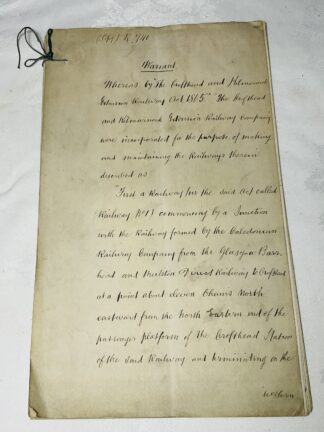 Warrant
Whereas by "The Crofthead and Kilmarnock
Extension Railway Act 1865" The Crofthead
and Kilmarnock Extension Railway Company
were incorporated for the purpose of making
and maintaining the Railways therein
described as
First a Railway in the said Act called
Railway No 1 commencing by a Junction
with the Railway formed by the Caledonian
Railway Company from the Glasgow Barr-
head and Neilston Direct Railway to Crofthead
at a point about eleven Chains North
eastward from the North Eastern end of the
passenger platform of the Crofthead Station
of the said Railway and terminating on the
western